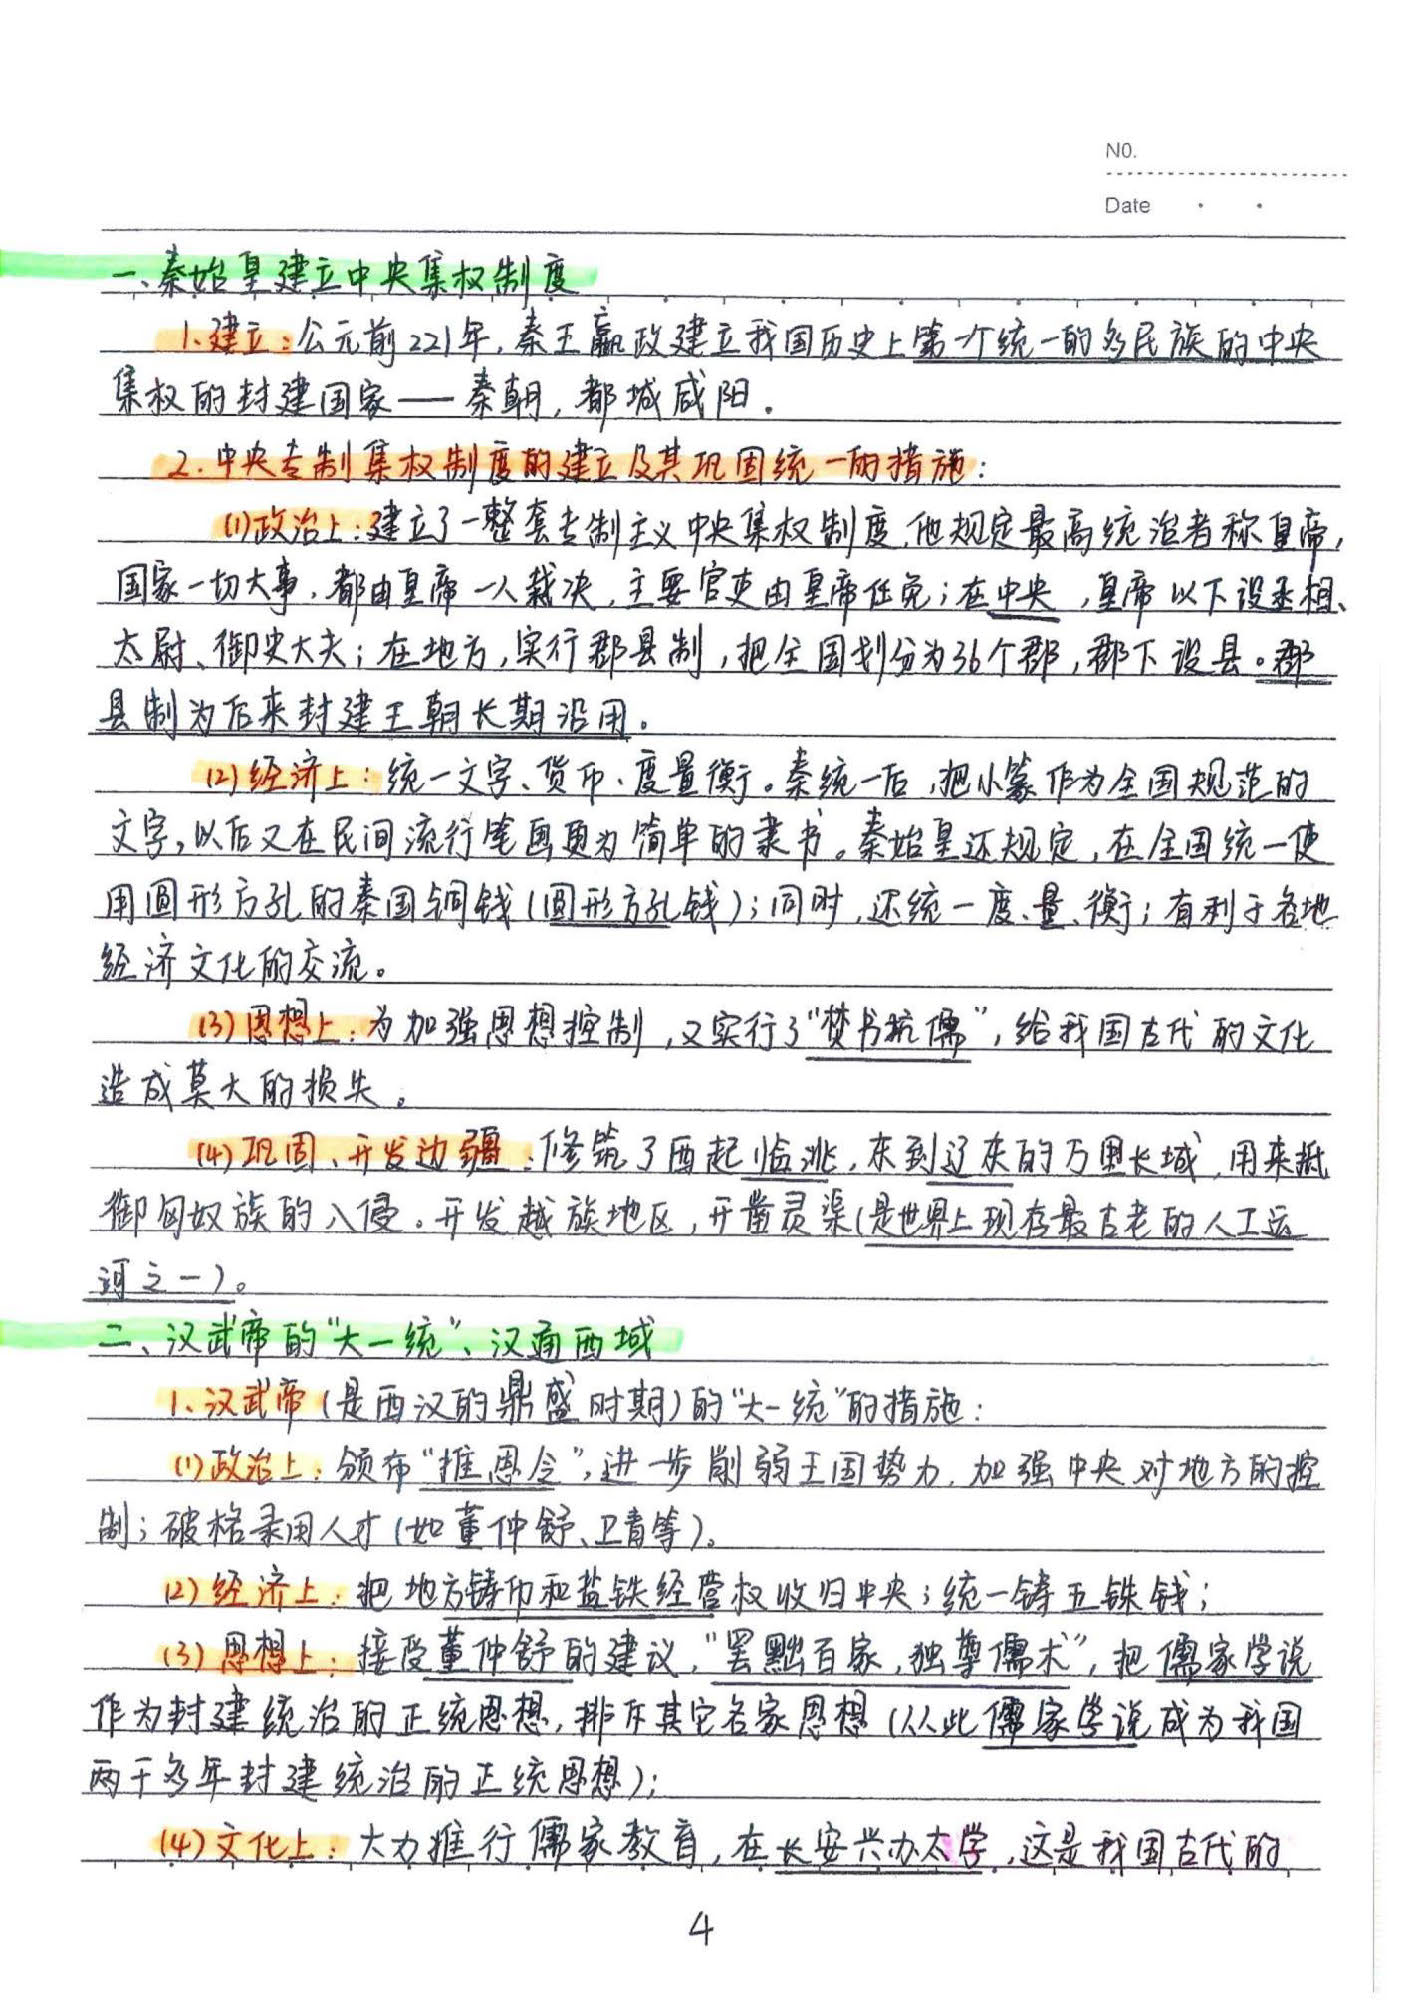 NO.
Date
一、秦始皇建立中央集权制度
1、建立：公元前221年，秦王嬴政建立我国历史上第一个统一的多民族的中央
集权的封建国家——秦朝，都城咸阳.
2.中央专制集权制度的建立及其巩固统一的措施：
(1)政治上：建立了一整套专制主义中央集权制度，他规定最高统治者称皇帝，
国家一切大事，都由皇帝一人裁决，主要官吏由皇帝任免；在中央，皇帝以下设丞相、
太尉、御史大夫；在地方，实行郡县制，把全国划分为36个郡，郡下设县。郡
县制为后来封建王朝长期沿用。
(2)经济上：统一文字、货币、度量衡。秦统一后，把小篆作为全国规范的
文字，以后又在民间流行笔画更为简单的隶书。秦始皇还规定，在全国统一使
用圆形方孔的秦国铜钱(圆形方孔钱)；同时，还统一度、量、衡；有利于各地
经济文化的交流。
(3)思想上：为加强思想控制，又实行了“焚书坑儒”，给我国古代的文化
造成莫大的损失。
(4)巩固、开发边疆：修筑了西起临洮，东到辽东的万里长城，用来抵
御匈奴族的入侵。开发越族地区，开凿灵渠(是世界上现存最古老的人工运
河之一)。
二、汉武帝的“大一统”、汉通西域
1、汉武帝(是西汉的鼎盛时期)的“大一统”的措施：
(1)政治上：颁布“推恩令”，进一步削弱王国势力，加强中央对地方的控
制；破格录用人才(如董仲舒、卫青等)。
(2)经济上：把地方铸币和盐铁经营权收归中央；统一铸五铢钱；
(3)思想上：接受董仲舒的建议，“罢黜百家，独尊儒术”，把儒家学说
作为封建统治的正统思想，排斥其它各家思想(从此儒家学说成为我国
两千多年封建统治的正统思想)；
(4)文化上：大力推行儒家教育，在长安兴办太学，这是我国古代的
4